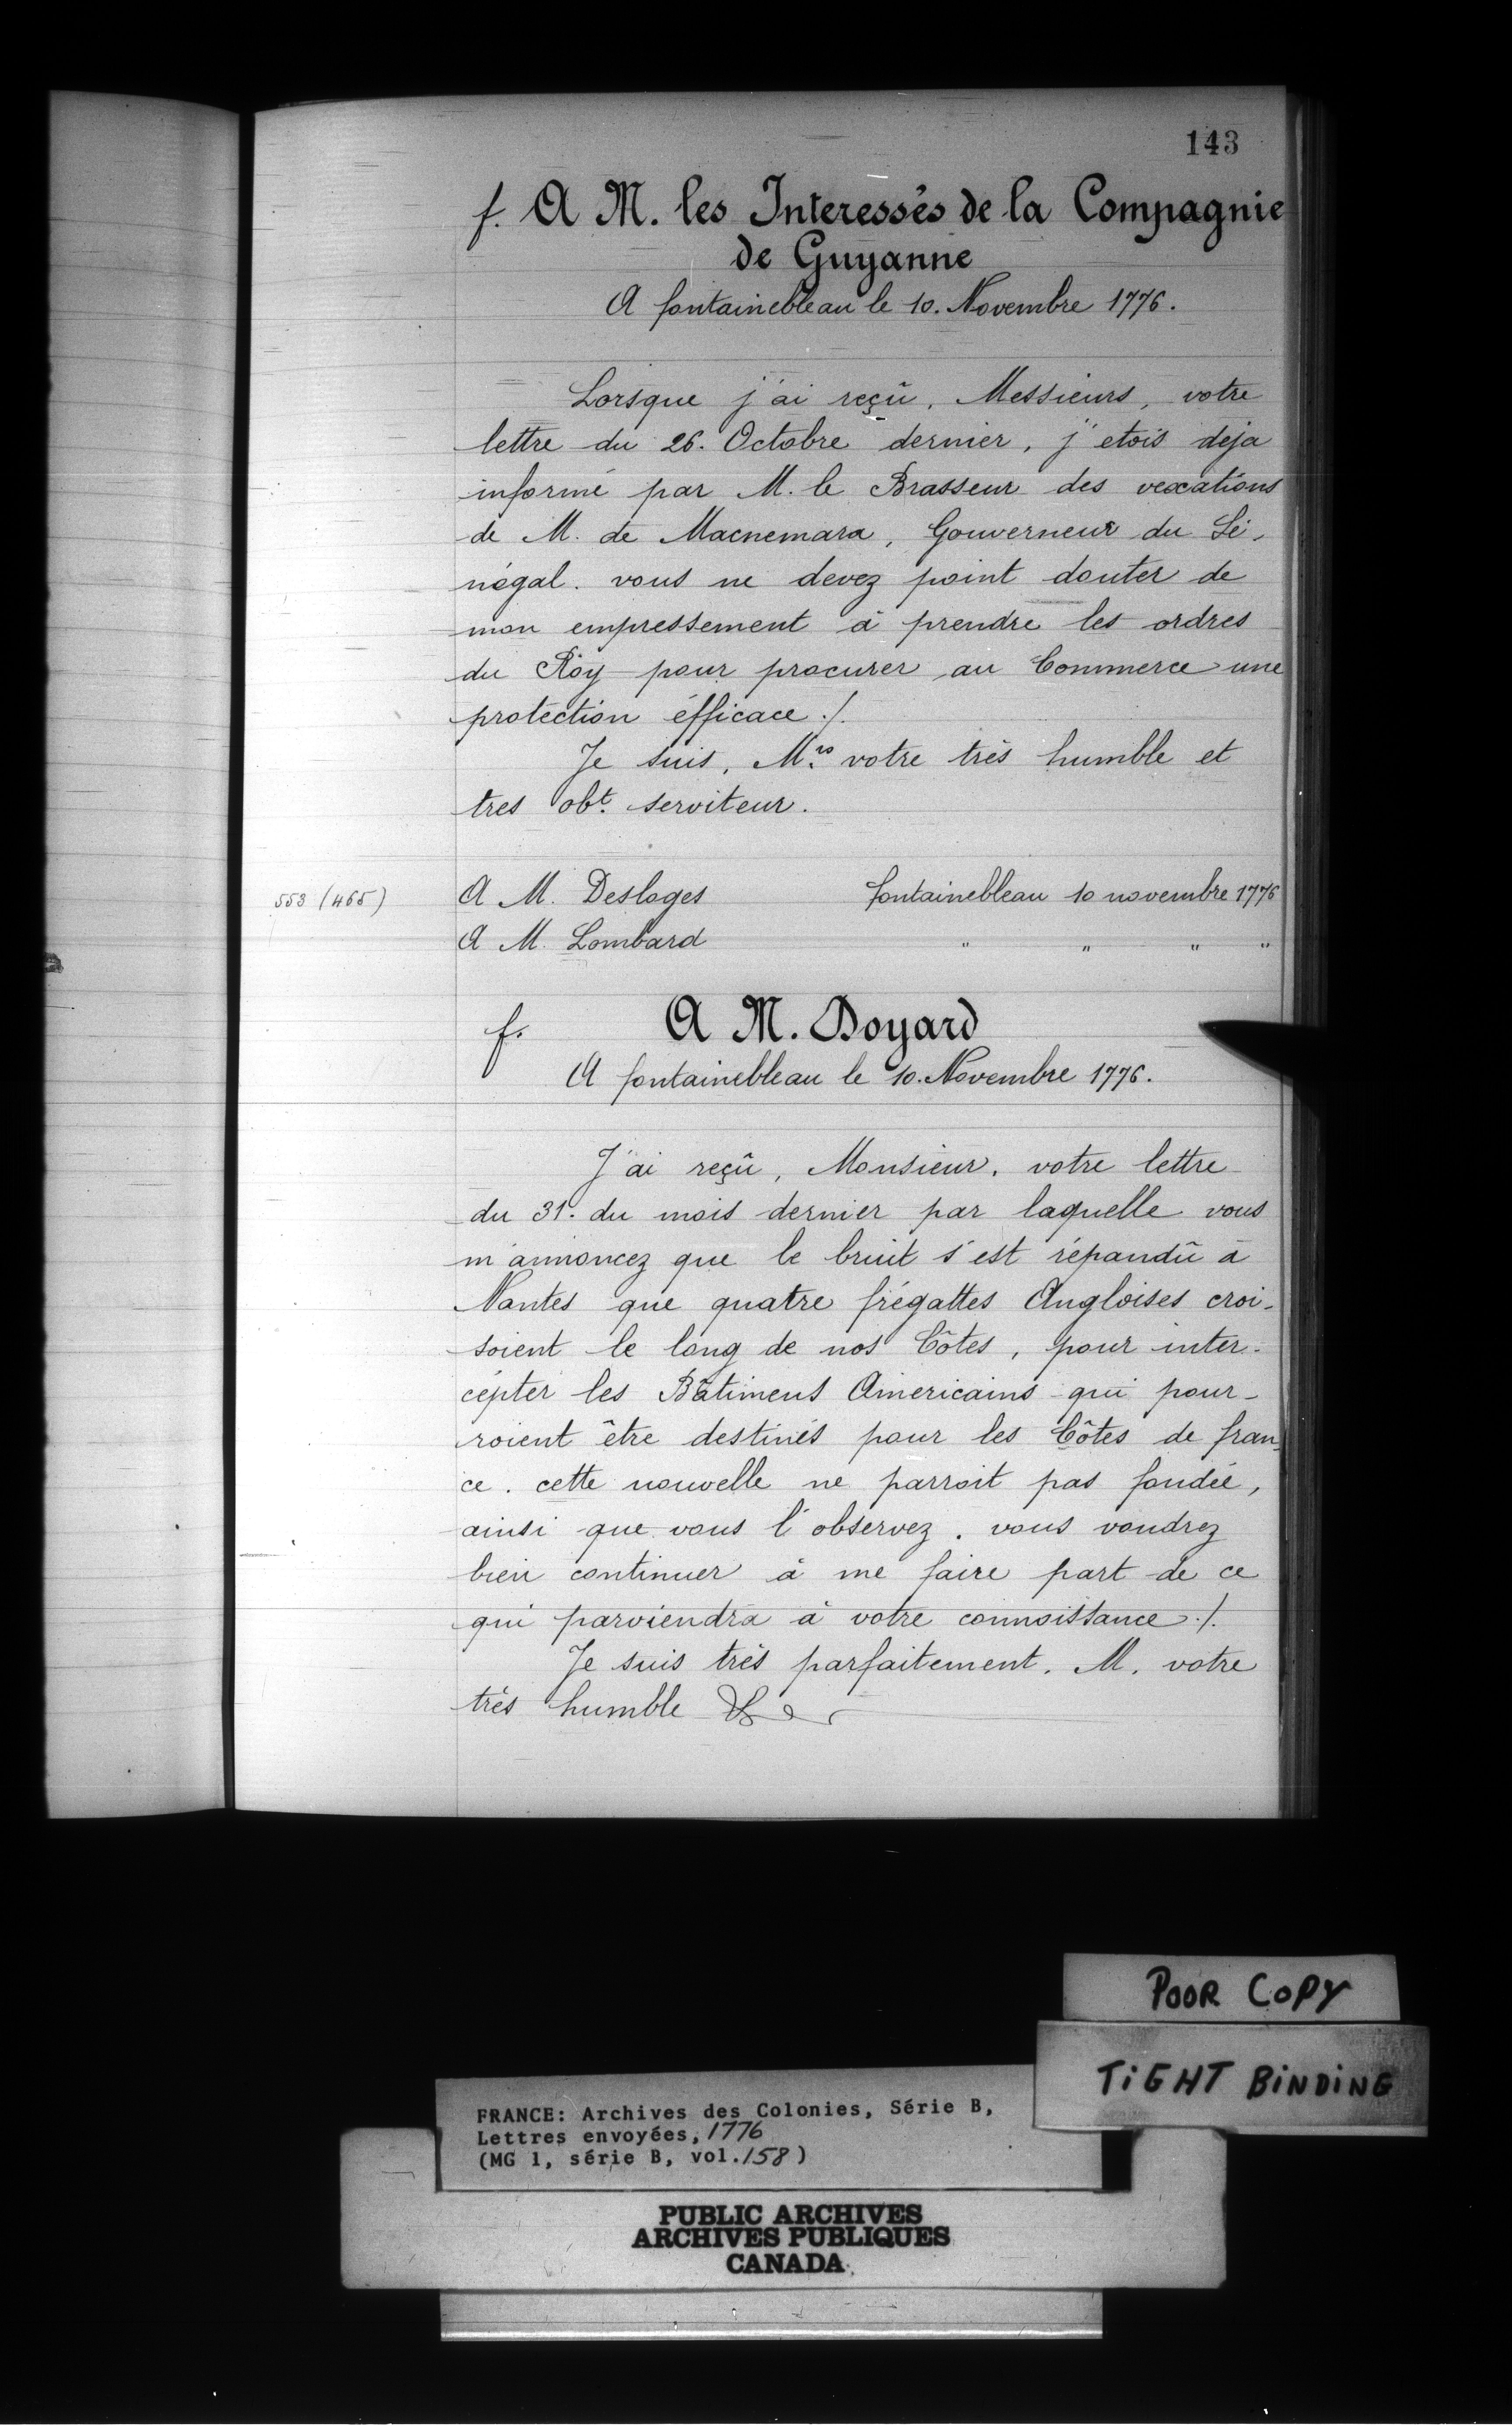 143
f. A M. les Interessés de la Compagnie
de Guyanne
A fontainebleau le 10. Novembre 1776.
Lorsque j'ai reçû, Messieurs, votre
lettre du 26. Octobre dernier, j'etois deja
informé par M. le Brasseur des vexations
de M. de Macnemara, Gouverneur du Sé-
négal. vous ne devez point douter de
mon empressement à prendre les ordres
du Roy pour procurer au Commerce une
protection éfficace ./.
Je suis, Mrs. votre très humble et
tres obt. serviteur.
553 (465) A M. Desloges fontainebleau 10 novembre 1776
A M. Lombard " " " "
f. A M. Doyard
A fontainebleau le 10. Novembre 1776.
J'ai reçû, Monsieur, votre lettre
du 31. du mois dernier par laquelle vous
m'annoncez que le bruit s'est répandû à
Nantes que quatre frégattes Angloises croi-
soient le long de nos Côtes, pour inter-
cépter les Bâtimens Americains qui pour-
roient être destinés pour les Côtes de fran-
ce. cette nouvelle ne parroit pas fondée,
ainsi que vous l'observez. vous voudrez
bien continuer à me faire part de ce
qui parviendra à votre connoissance ./.
Je suis très parfaitement. M. votre
très humble &
POOR COPY
TIGHT BINDING
FRANCE: Archives des Colonies, Série B,
Lettres envoyées, 1776
(MG 1, série B, vol. 158)
PUBLIC ARCHIVES
ARCHIVES PUBLIQUES
CANADA